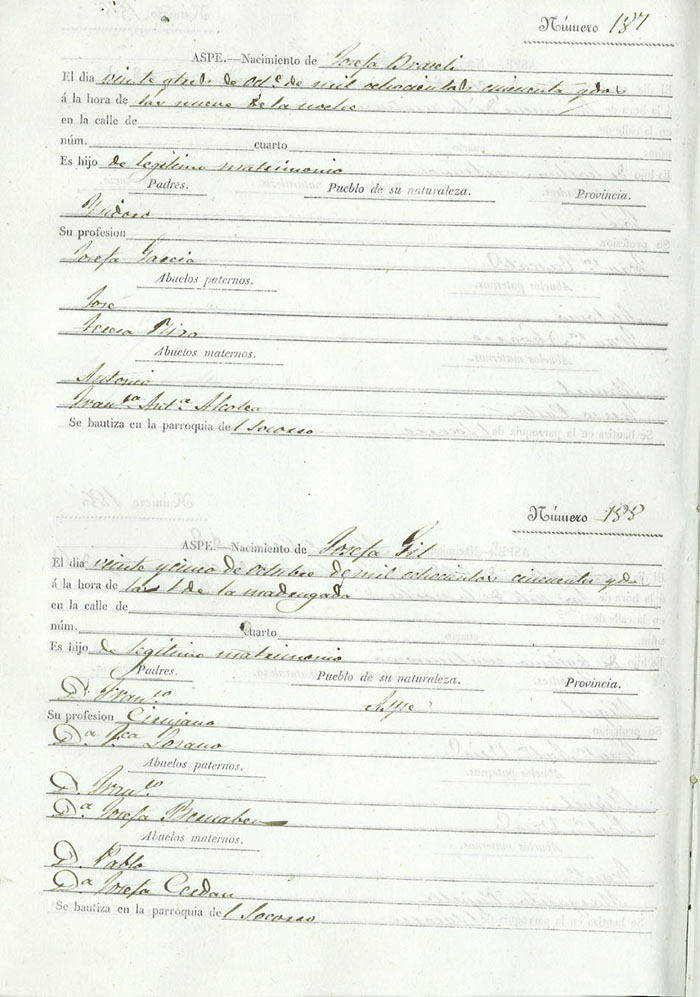 Número 187
ASPE.—Nacimiento de Josefa
El dia vinte y tres de Oct.e de mil ochocientos cincuenta y dos
á la hora de las nueve de la noche
en la calle de
núm. cuarto
Es hijo de legitimo matrimonio
Padres. Pueblo de su naturaleza. Provincia.
Isidoro
Su profesion
Josefa Garcia
Abuelos paternos.
José
Teresa Miro
Abuelos maternos.
Antonio
Fran.ca Ant.a Alcolea
Se bautiza en la parroquia del Socorro
Número 188
ASPE.—Nacimiento de Josefa Gil
El dia vinte y cinco de Octubre de mil ochocientos cincuenta y dos
á la hora de las 1 de la madrugada
en la calle de
núm. cuarto
Es hijo de legitimo matrimonio
Padres. Pueblo de su naturaleza. Provincia.
D. Fran.co Aspe
Su profesion Cirujano
D.a Losano
Abuelos paternos.
D. Fran.co
D.a Josefa Bernabeu
Abuelos maternos.
D. Pablo
D.a Josefa Cerdan
Se bautiza en la parroquia del Socorro